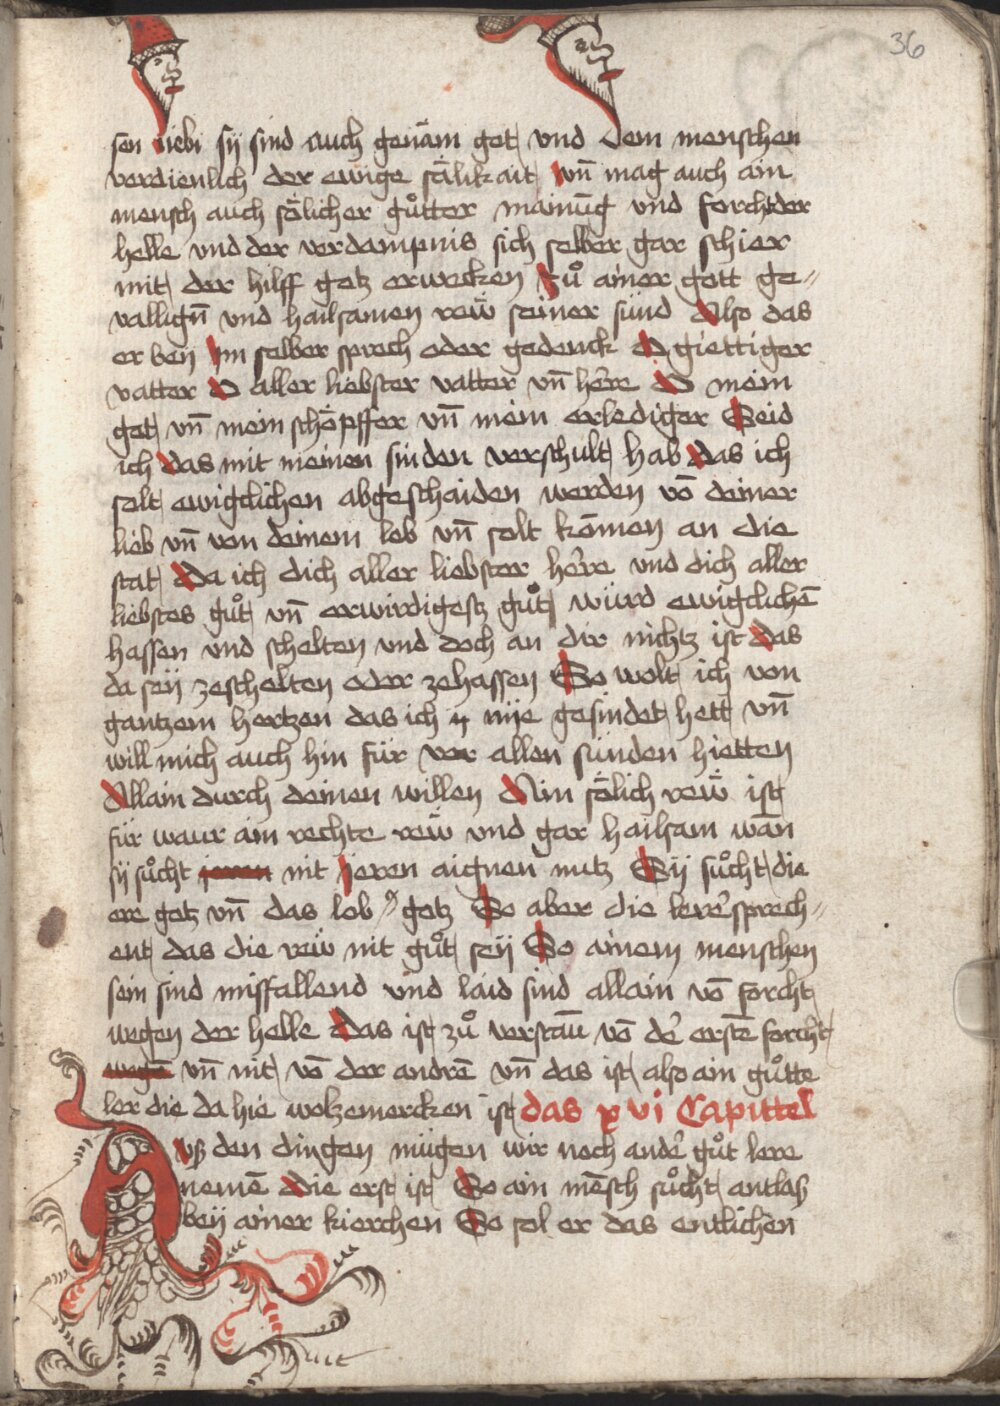 36
sen liebi sÿ sind auch genäm got und dem menschen
verdienlich der ewige sälikait vn̄ mag auch ain
mensch auch sölicher gůtter mainūg und forcht der
helle und der verdampnis sich selber gar schier
mit der hilff gotz erwecken zů ainer gott ge⸗
vallign̄ und hailsamen rew̎ seiner sünd Also das
er beÿ im selber sprech oder gedenck O giettiger
vatter O aller liebster vatter vn̄ here O mein
got vn̄ mein schöpffer vn̄ mein erlediger Seid
ich das mit meinen sinden verschult hab das ich
solt ewigclichen abgeschaiden werden vō deiner
lieb vn̄ von deinem lob vn̄ solt kōmen an die
stat Da ich dich aller liebster here und dich aller
liebstes gůt vn̄ erwirdigestz gůt wurd ewigclichē
hassen und schelten und doch an dir nichtz ist das
da seÿ zeschelten oder zehassen So wolt ich von
gantzem hertzen das ich nÿe gesindet hett vn̄
will mich auch hin für vor allen sunden hietten
Allain durch deinen willen Ain sölich rew̎ ist
für waur ain rechte rew̎ und gar hailsam wan̄
sÿ sůcht nit jeren aignen nutz Sÿ sůcht die
ere gotz vn̄ das lob gotz So aber die lerer sprech⸗
ent das die rew̎ nit gůt seÿ So ainem menschen
sein sind missfallend und laid sind allain vō forcht
wegen der helle Das ist zů verstan̄ vō der erstē forcht
vn̄ nit vō der andrē vn̄ das ist also ain gůtte
ler die da hie wolzemercken ist das xvi Capittel
Auß den dingen mügen wir noch ander gůt lere
nemē Die erst ist So ain mēsch sůcht antlaß
beÿ ainer kierchen So sol er das entlichen